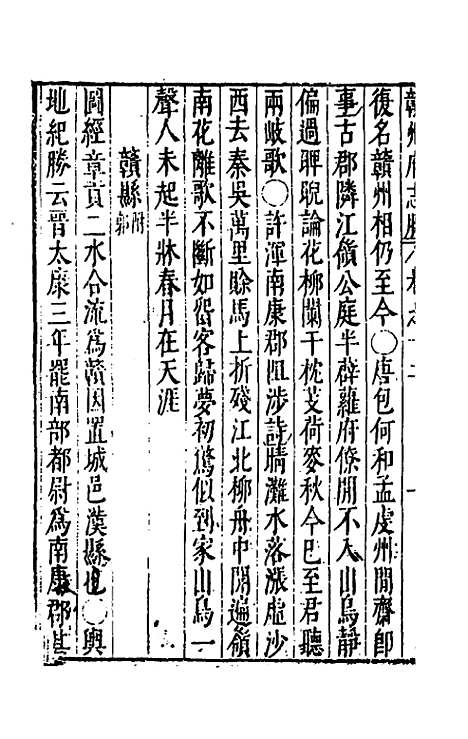 贛州府志勝 卷之十二
復名贛州相仍至今○唐包何和孟虔州閒齋即
事古郡隣江嶺公庭半薜蘿府僚閒不入山鳥靜
偏過睥睨論花柳闌干枕芰荷麥秋今已至君聽
兩岐歌○許渾南康郡阻涉詩晴灘水落漲虛沙
西去秦吳萬里賖馬上折殘江北柳舟中開遍嶺
南花離歌不斷如留客歸夢初驚似到家山鳥一
聲人未起半牀春月在天涯
贛縣附郭
圖經章貢二水合流爲贛因置城邑漢縣也○輿
地紀勝云晋太康三年罷南部都尉爲南康郡甚